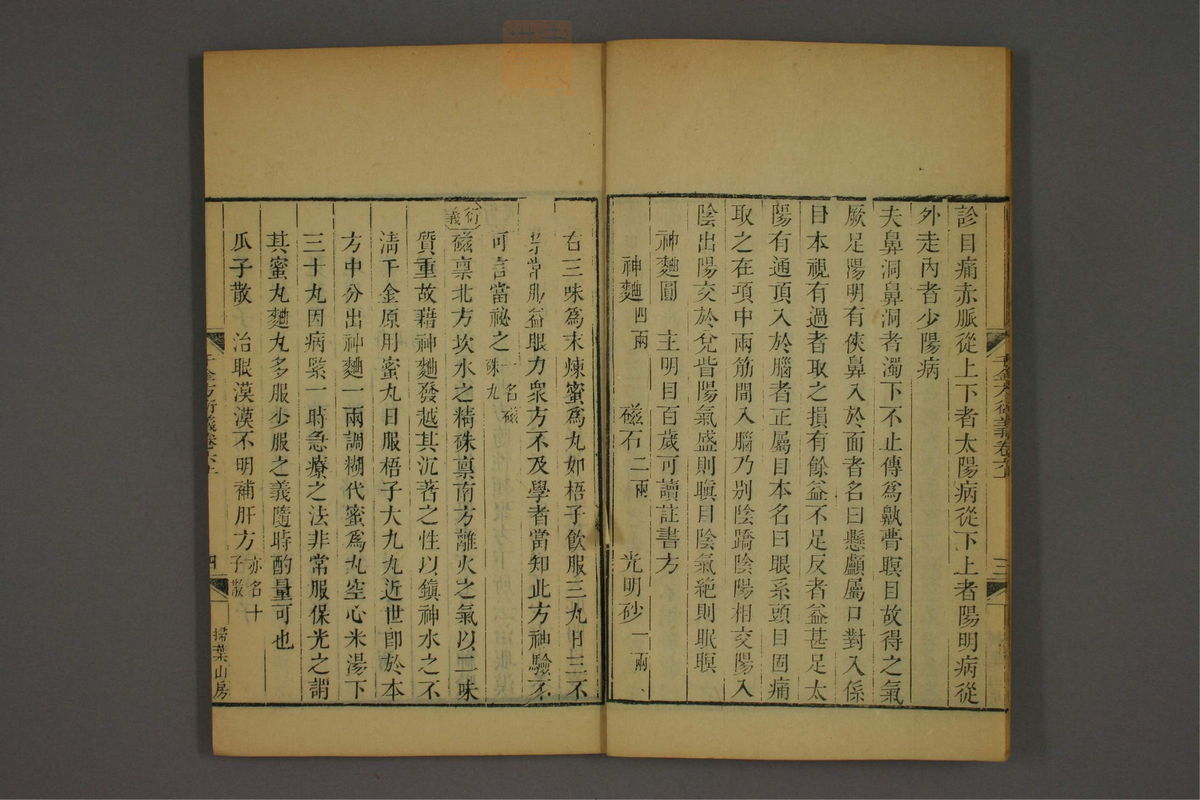 診目痛赤脈從上下者太陽病從下上者陽明病從
外走內者少陽病
夫鼻洞鼻洞者濁下不止傳為鼽瞢瞑目故得之氣
厥足陽明有俠鼻入於面者名曰懸顱屬口對入係
目本視有過者取之損有餘益不足反者益甚足太
陽有通項入於腦者正屬目本名曰眼系頭目固痛
取之在項中兩筋間入腦乃別陰蹻陰陽相交陽入
陰出陽交於兌眥陽氣盛則瞋目陰氣絕則眠瞑
神麯圓 主明目百歲可讀註書方
神麯四兩 磁石二兩 光明砂一兩
右三味為末煉蜜為丸如梧子飲服三丸日三不
禁常服益眼力衆方不及學者當知此方神驗不
可言當祕之一名磁硃丸
衍義
磁禀北方坎水之精硃禀南方離火之氣以二味
質重故藉神麯發越其沉著之性以鎮神水之不
淸千金原用蜜丸日服梧子大九九近世卽於本
方中分出神麯一兩調糊代蜜為丸空心米湯下
三十丸因病緊一時急療之法非常服保光之謂
其蜜丸麯丸多服少服之義隨時酌量可也
瓜子散 治眼漠漠不明補肝方亦名十子散
千金方衍義卷六上
四
掃葉山房